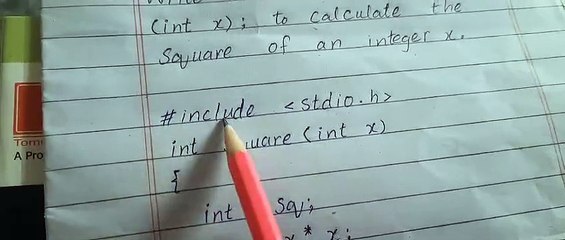 (int x); to calculate the
Square of an integer x.
#include <stdio.h>
int (int x)
{
int Sq;
* x;
A Pro